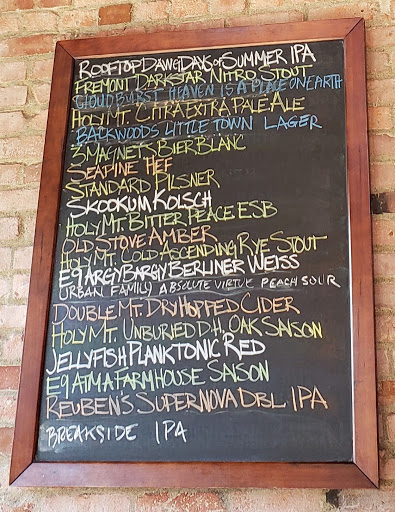 ROOFTOP DAWG DAYS OF SUMMER IPA
FREMONT DARKSTAR NITRO STOUT
CLOUDBURST HEAVEN IS A PLACE ON EARTH
HOLY MT. CITRA EXTRA PALE ALE
BACKWOODS LITTLE TOWN LAGER
3 MAGNETS BIER BLANC
SEAPINE HEF
STANDARD PILSNER
SKOOKUM KOLSCH
HOLY MT. BITTER PEACE ESB
OLD STOVE AMBER
HOLY MT. COLD ASCENDING RYE STOUT
E9 ARGY BARGY BERLINER WEISS
URBAN FAMILY ABSOLUTE VIRTUE PEACH SOUR
DOUBLE MT. DRY HOPPED CIDER
HOLY MT. UNBURIED D.H. OAK SAISON
JELLYFISH PLANKTONIC RED
E9 ATM A FARMHOUSE SAISON
REUBEN'S SUPERNOVA DBL IPA
BREAKSIDE IPA